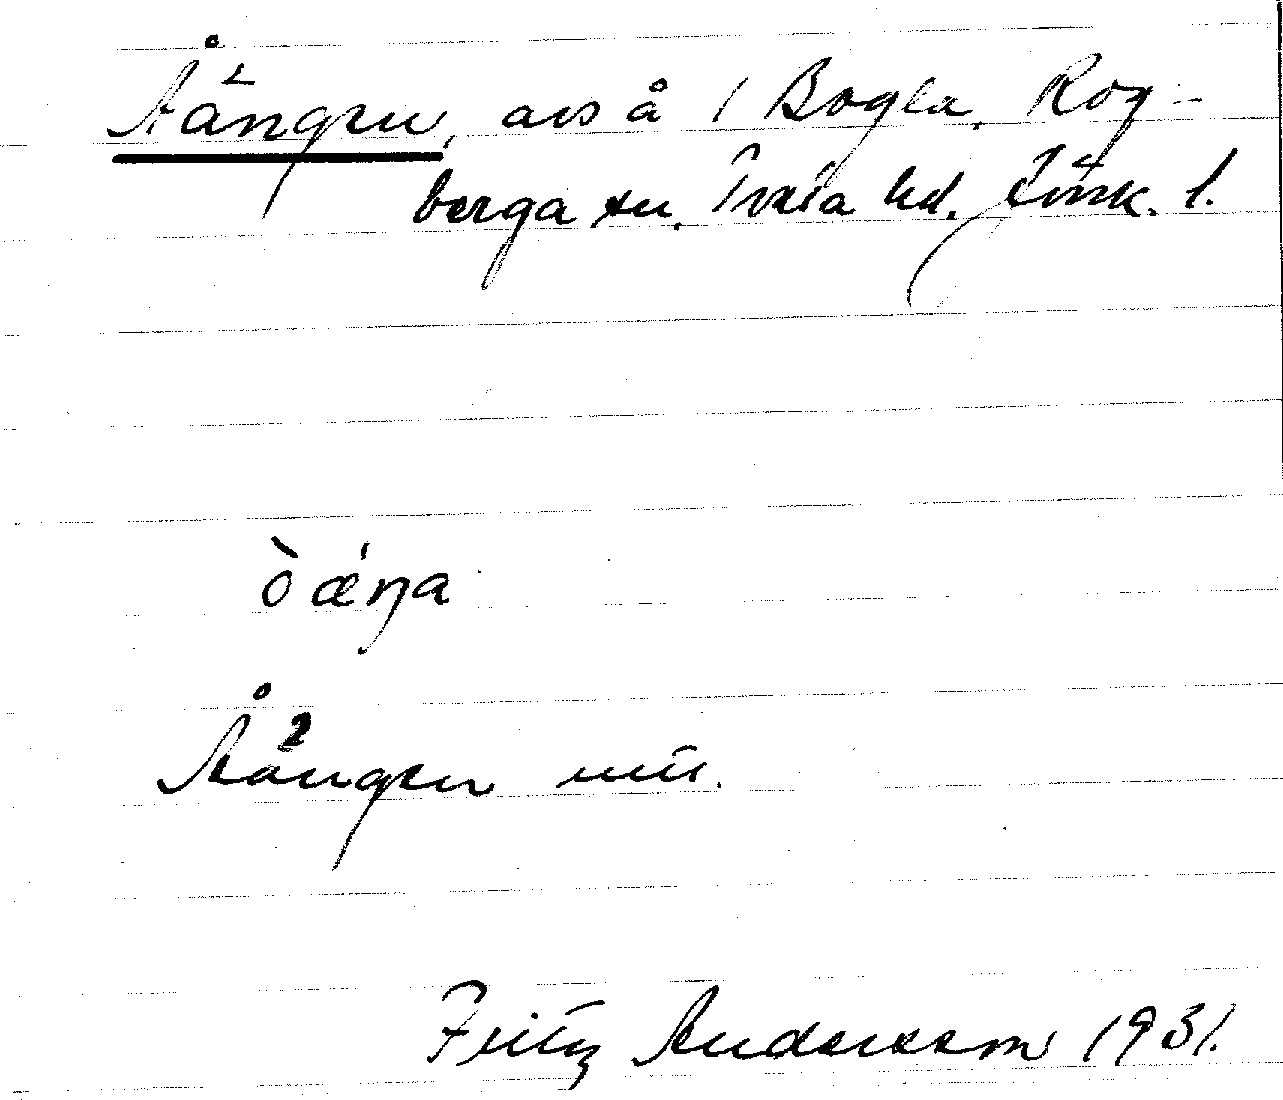 Åängen, avs å i Bogla, Rog-
berga sn. Tveta hd. Jönk. l.
ò ǽŋa
Åängen
Fritz Andersson 1931.